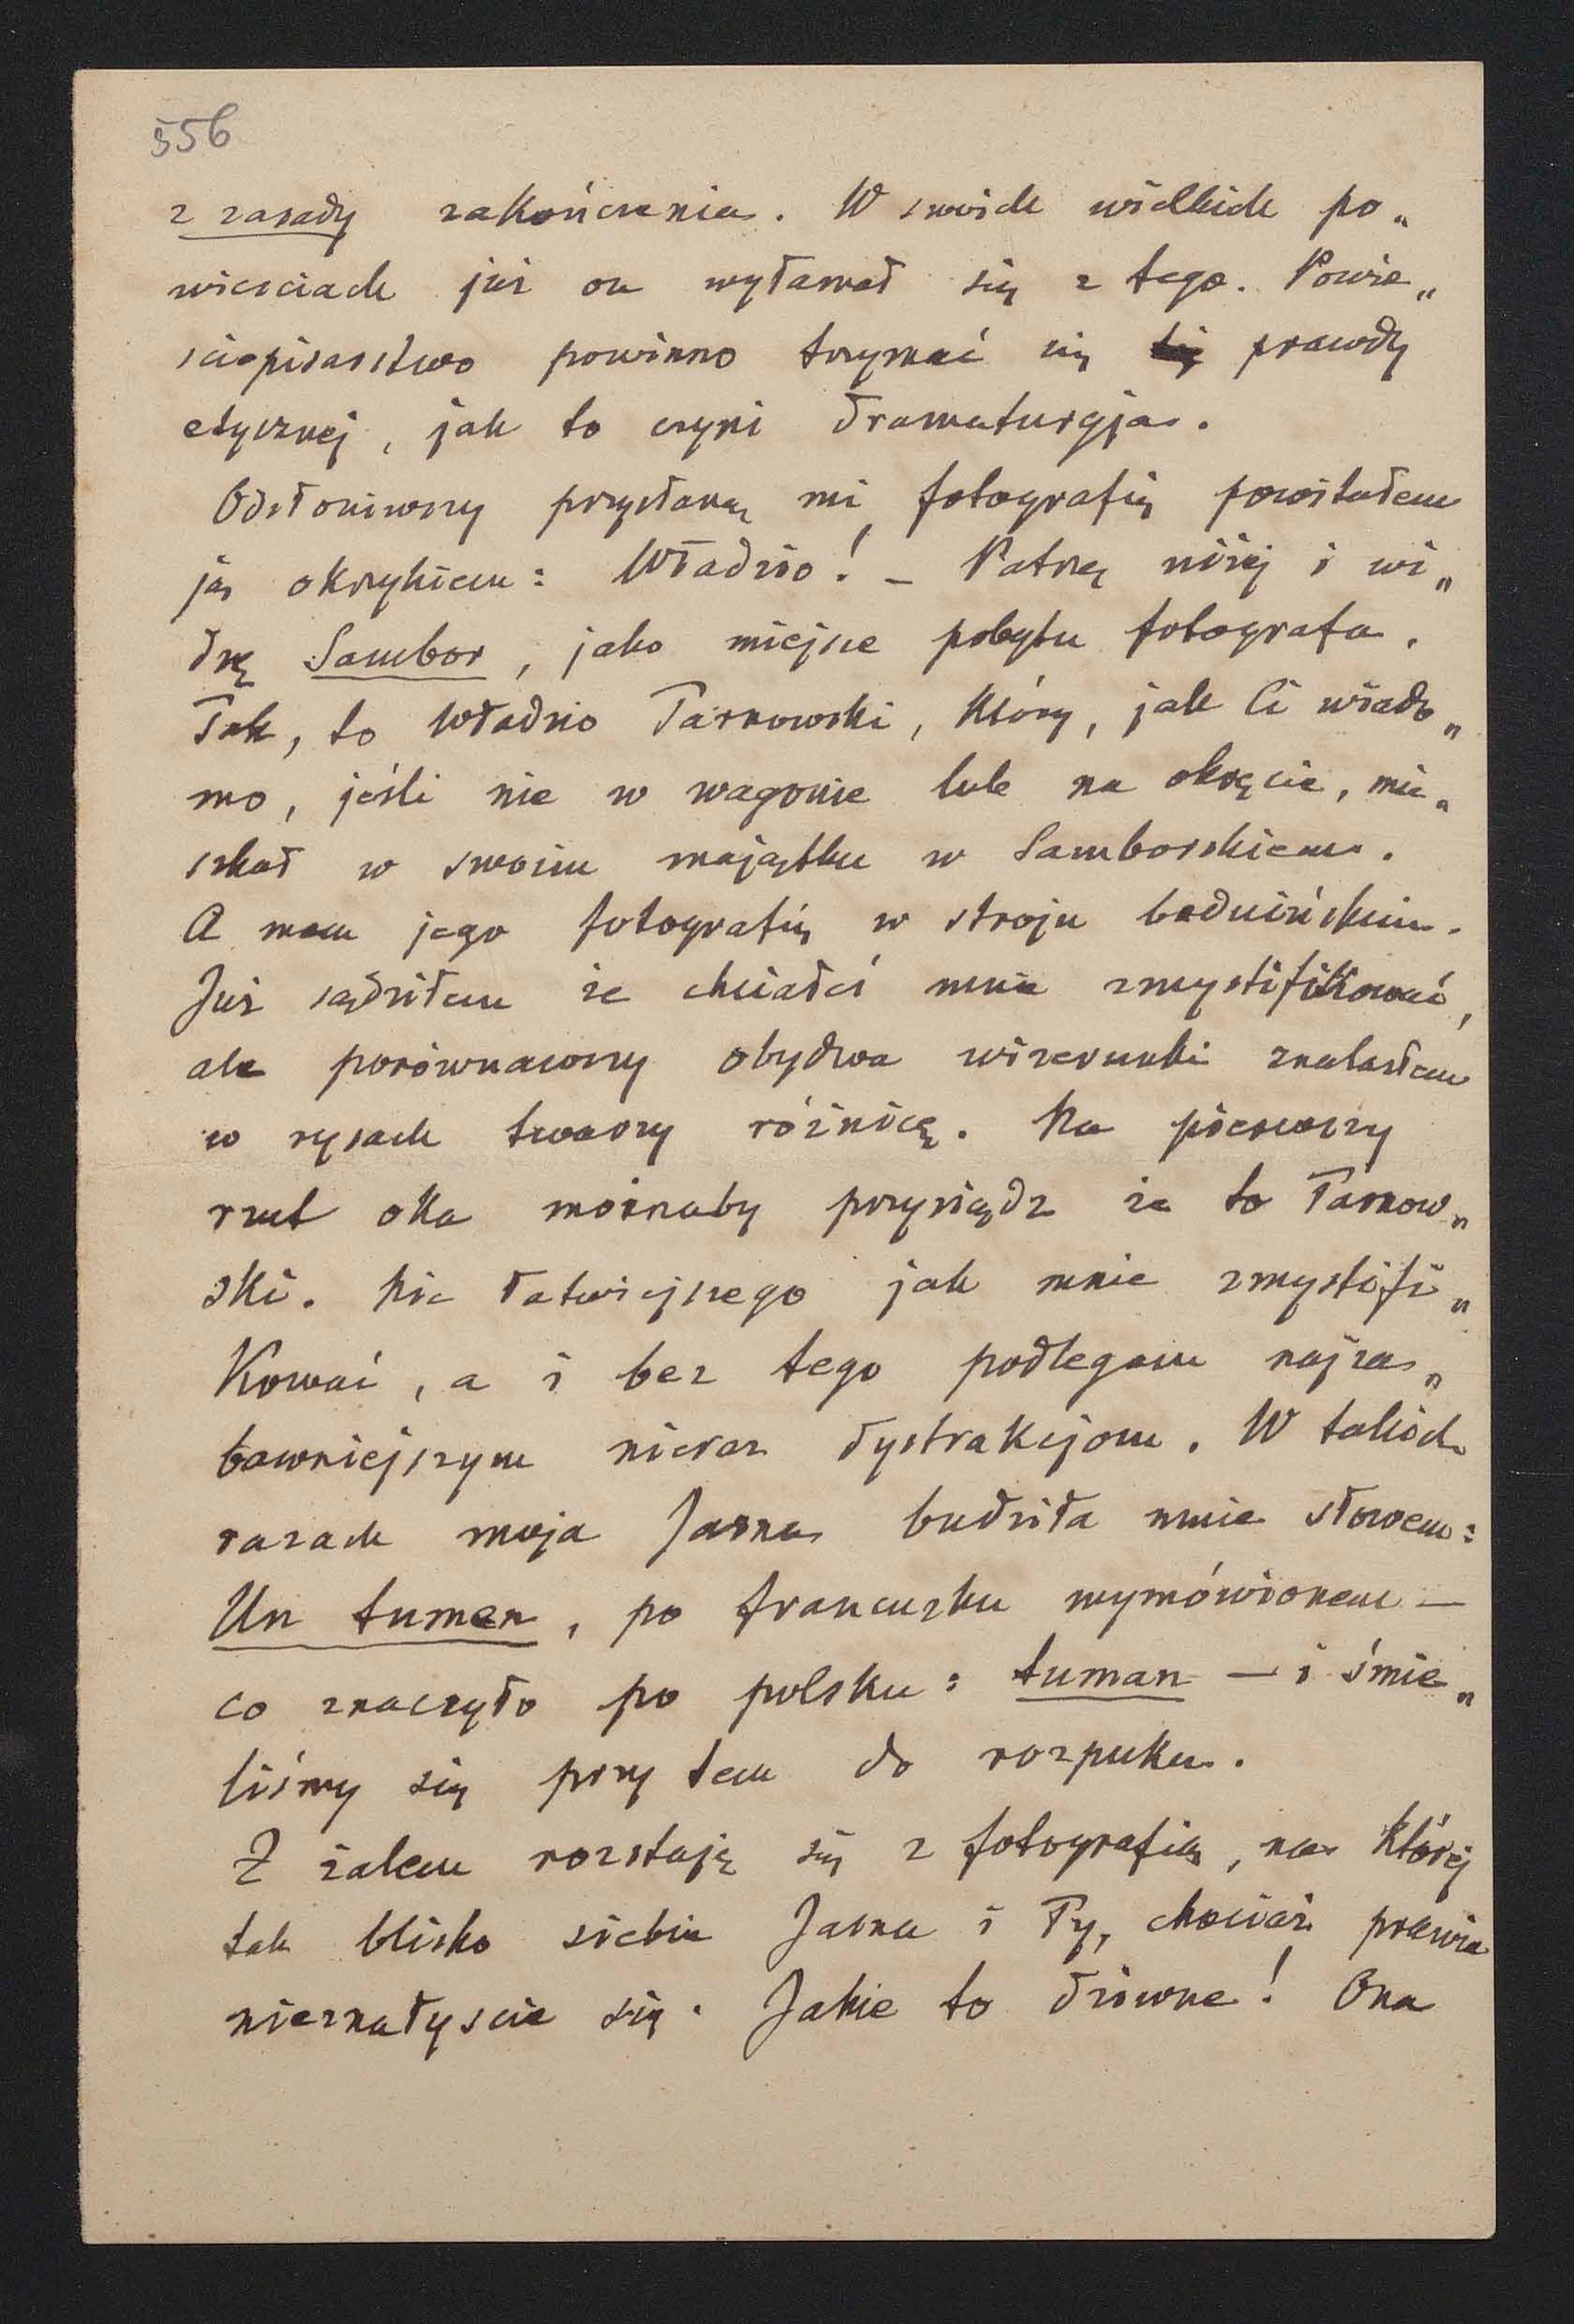 556
z zasady zakończenia. W swoich wielkich po„
wieściach już on wyłamał się z tego. Powie„
ściopisarstwo powinno trzymać się prawdy
etycznej, jak to czyni dramaturgja.
Odsłoniwszy przysłaną mi fotografię powitałem
ją okrzykiem: Władzio! – Patrzę niżej i wi„
dzę Sambor, jako miejsce pobytu fotografa.
Tak, to Władzio Tarnowski, który, jak Ci wiado„
mo, jeśli nie w wagonie lub na okręcie, mie„
szkał w swoim majątku w Samborskiem.
A mam jego fotografię w stroju beduińskim.
Już sądziłem że chciałeś mnie zmystifikować,
ale porównawszy obydwa wizerunki znalazłem
w rysach twarzy różnicę. Na pierwszy
rzut oka możnaby przysiądz że to Tarnow„
ski. Nic łatwiejszego jak mnie zmystifi„
kować, a i bez tego podlegam najza„
bawniejszym nieraz dystrakcjom. W takich
razach moja Jasna budziła mnie słowem:
Un tumen, po francuzku wymówionem —
co znaczyło po polsku: tuman — i śmie„
liśmy się przy tem do rozpuku.
Z żalem rozstaję się z fotografią, na której
tak blisko siebie Jasna i Ty, chociaż prawie
nieznałyście się. Jakie to dziwne! Ona